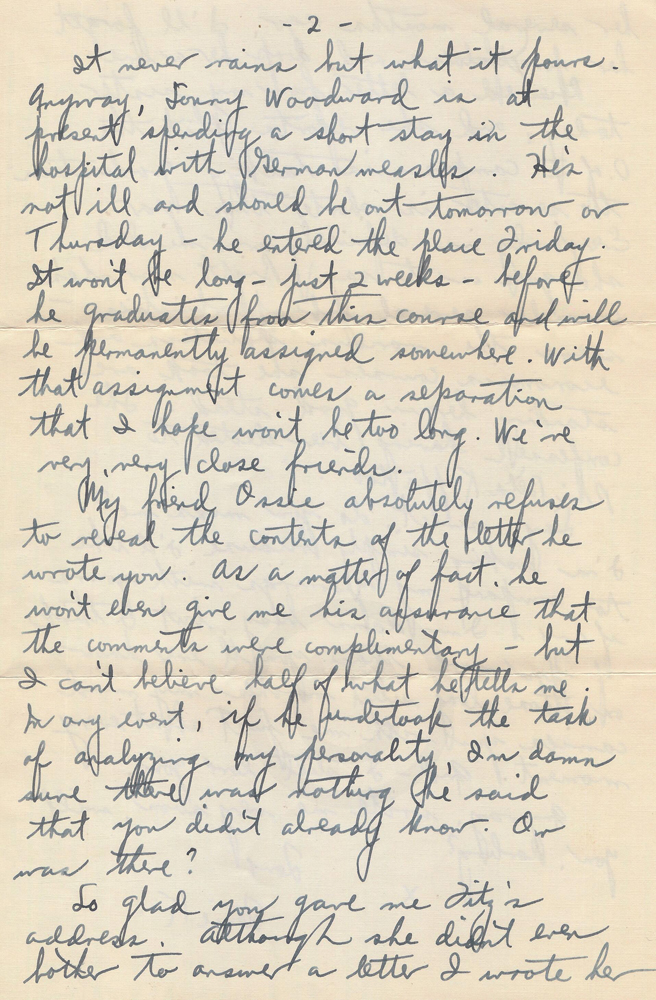 - 2 -
It never rains but what it pours.
Anyway, Sonny Woodward is at
present spending a short stay in the
hospital with German measles. He's
not ill and should be out tomorrow or
Thursday - he entered the place Friday.
It won't be long - just 2 weeks - before
he graduates from this course and will
be permanently assigned somewhere. With
that assignment comes a separation
that I hope won't be too long. We're
very, very close friends.
My friend Ossie absolutely refuses
to reveal the contents of the letter he
wrote you. As a matter of fact, he
won't even give me his assurance that
the comments were complimentary - but
I can't believe half of what he tells me.
In any event, if he undertook the task
of analyzing my personality, I'm damn
sure there was nothing he said
that you didn't already know. Or
was there?
So glad you gave me Fitz's
address. Although she didn't even
bother to answer a letter I wrote her